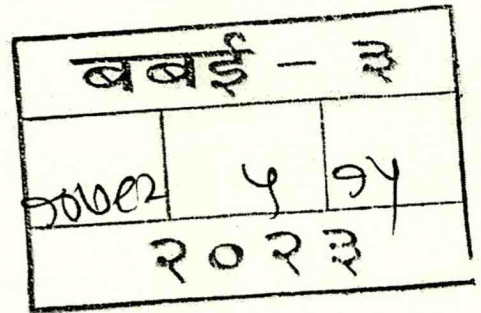 बबई - ३
१०७९२ ५ १५
२०२३